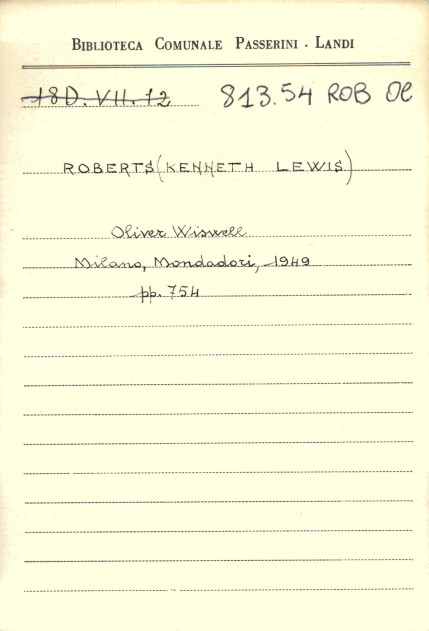 BIBLIOTECA COMUNALE PASSERINI - LANDI
18D. VII. 12 813.54 ROB OL
ROBERTS (KENNETH LEWIS)
Oliver Wiswell
Milano, Mondadori, 1949
pp. 754